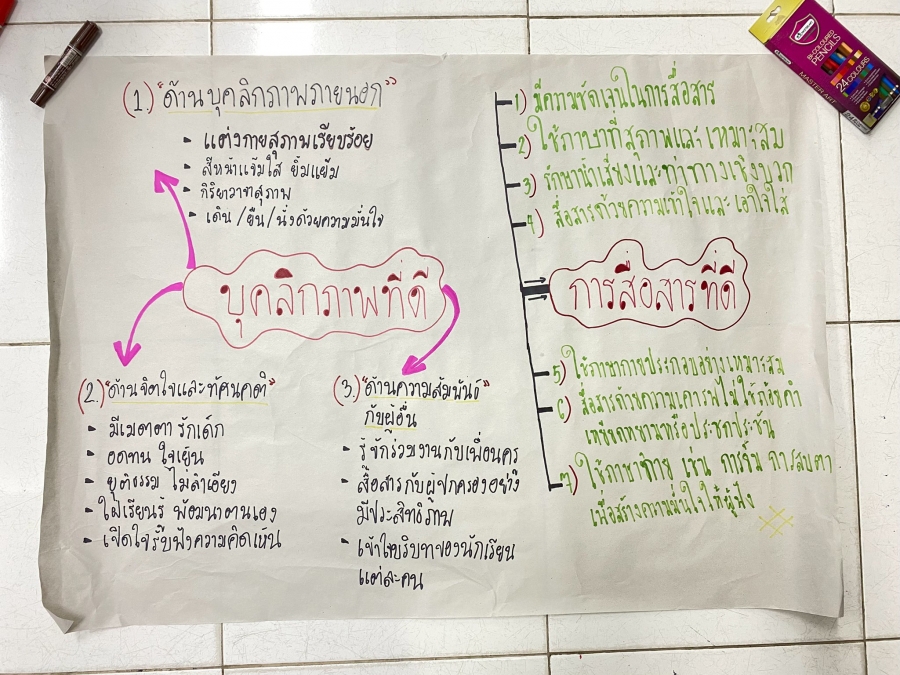 (1.) "ด้านบุคลิกภาพภายนอก"
- แต่งกายสุภาพเรียบร้อย
- สีหน้าแจ่มใส ยิ้มแย้ม
- กิริยาวาจาสุภาพ
- เดิน/ยืน/นั่งด้วยความมั่นใจ
บุคลิกภาพที่ดี
(2.) "ด้านจิตใจและทัศนคติ"
- มีเมตตา รักเด็ก
- อดทน ใจเย็น
- ยุติธรรม ไม่ลำเอียง
- ใฝ่เรียนรู้ พัฒนาตนเอง
- เปิดใจรับฟังความคิดเห็น
(3.) "ด้านความสัมพันธ์"
กับผู้อื่น
- รู้จักร่วมงานกับเพื่อนครู
- สื่อสารกับผู้ปกครองอย่าง
มีประสิทธิภาพ
- เข้าใจบริบทของนักเรียน
แต่ละคน
1) มีความชัดเจนในการสื่อสาร
2) ใช้ภาษาที่สุภาพและเหมาะสม
3) รักษาน้ำเสียงและท่าทางเชิงบวก
4) สื่อสารด้วยความเข้าใจและเอาใจใส่
การสื่อสารที่ดี
5) ใช้ภาษากายประกอบอย่างเหมาะสม
6) สื่อสารด้วยความเคารพไม่ใช้ถ้อยคำ
เหยียดหยามหรือประชดประชัน
7) ใช้ภาษากาย เช่น การยิ้ม การสบตา
เพื่อสร้างความมั่นใจให้ผู้ฟัง
BI-COLOURED
PENCILS
MASTER ART
24 COLOURS